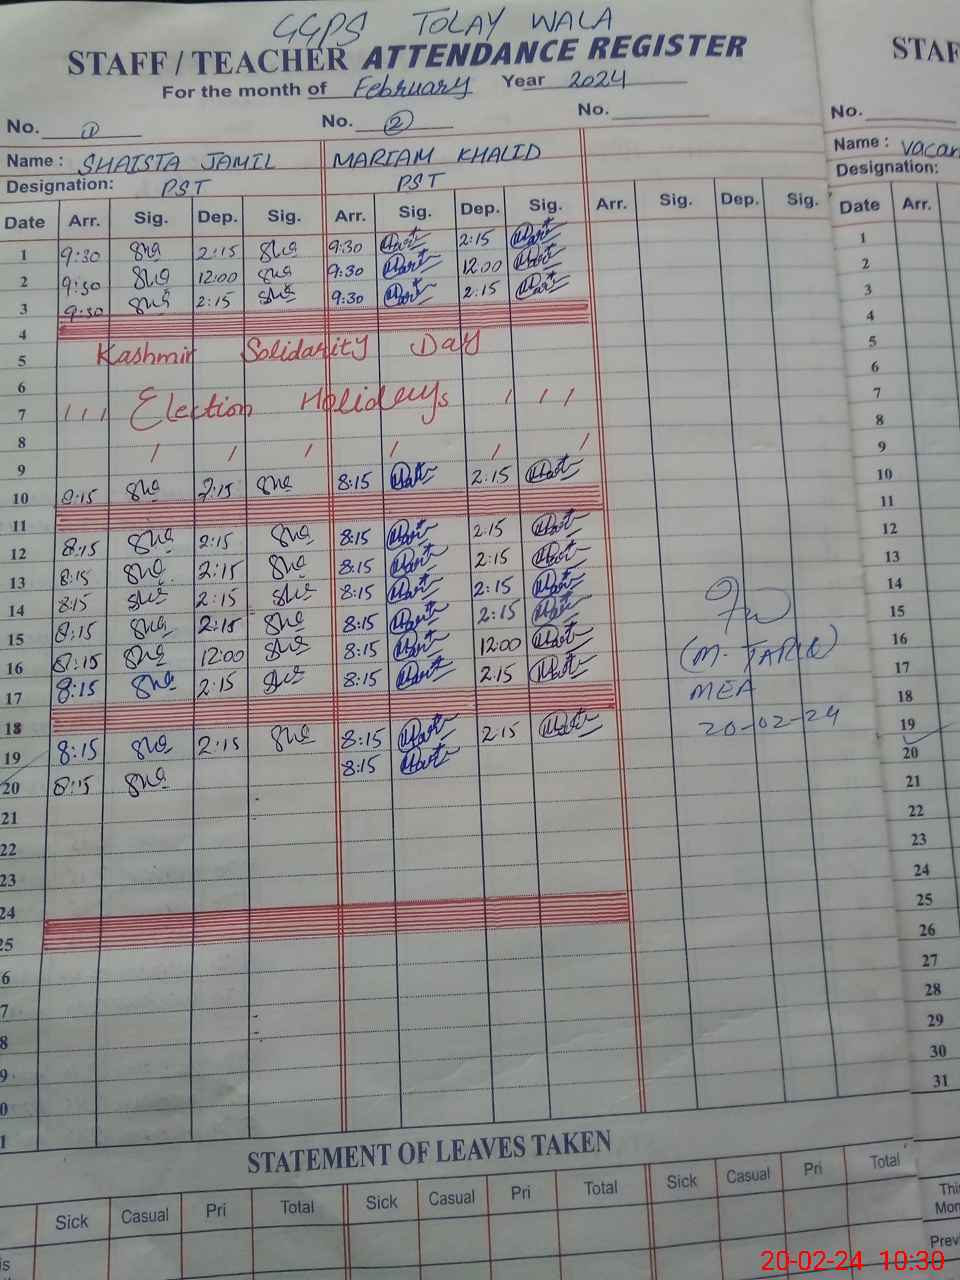 GGPS TOLAY WALA
STAFF / TEACHER ATTENDANCE REGISTER
STAF
For the month of February Year 2024
No. 1 No. 2 No. No.
Name : SHAISTA JAMIL MARIAM KHALID Name : vacan
Designation: PST PST Designation:
Date Arr. Sig. Dep. Sig. Arr. Sig. Dep. Sig. Arr. Sig. Dep. Sig. Date Arr.
1 9:30 Sha 2:15 Sha 9:30 2:15 1
2 9:30 Sha 12:00 Sha 9:30 12:00 2
3 9:30 Sha 2:15 Sha 9:30 2:15 3
4 4
5 Kashmir Solidarity Day 5
6 6
7 Election Holidays 7
8 8
9 9
10 8:15 Sha 2:15 Sha 8:15 2:15 10
11 11
12 8:15 Sha 2:15 Sha 8:15 2:15 12
13 8:15 Sha 2:15 Sha 8:15 2:15 13
14 8:15 Sha 2:15 Sha 8:15 2:15 14
15 8:15 Sha 2:15 Sha 8:15 2:15 15
16 8:15 Sha 12:00 Sha 8:15 12:00 (M. TARIQ) 16
17 8:15 Sha 2:15 Sha 8:15 2:15 MEA 17
18 20-02-24 18
19 8:15 Sha 2:15 Sha 8:15 2:15 19
20 8:15 Sha 8:15 20
21 21
22 22
23 23
24 24
25 25
6 26
7 27
8 28
9 29
0 30
1 31
STATEMENT OF LEAVES TAKEN
Sick Casual Pri Total Sick Casual Pri Total Sick Casual Pri Total
This
Mon
is Prev
20-02-24 10:30